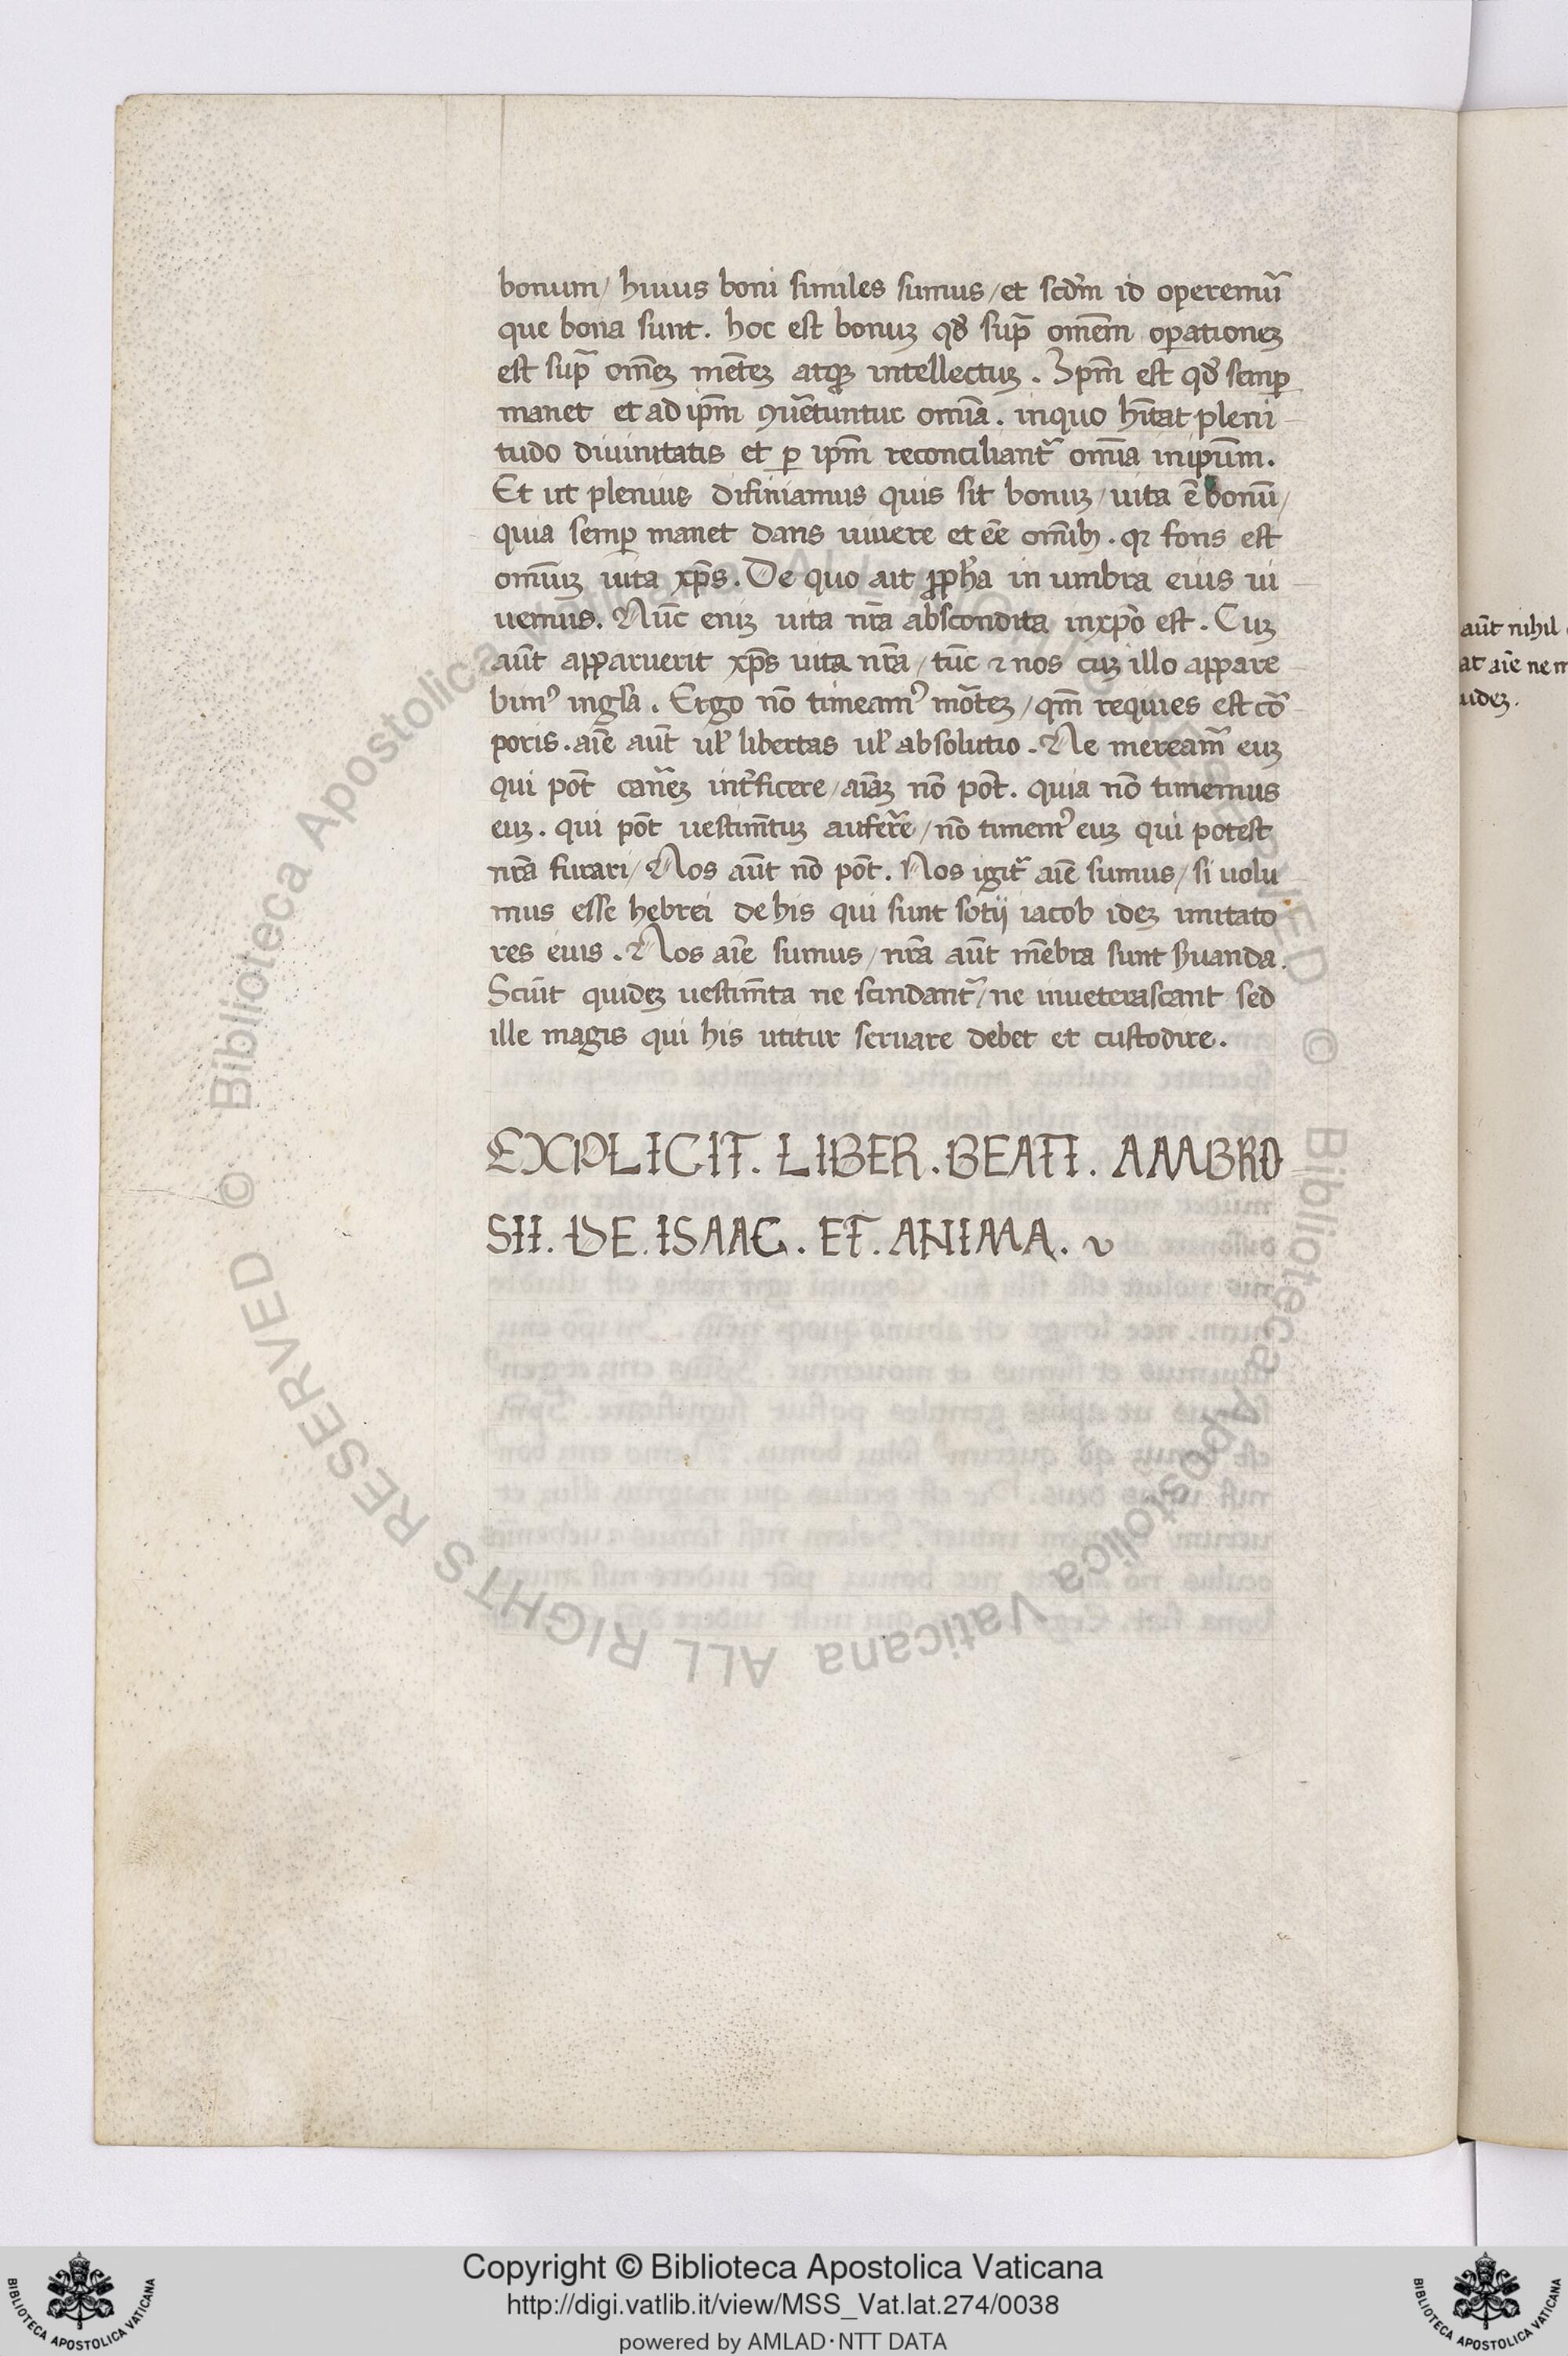 bonum / huius boni similes sumus / et scd̄m id operemur̄
que bona sunt . hoc est bonuꝫ qđ sup̄ om̄em operationeꝫ
est sup̄ om̄eꝫ mēteꝫ atqꝫ intellectuꝫ . Ip̄m est qđ semꝑ
manet et ad ip̄m ꝯuētuntur om̄ia . inquo hītat pleni
tudo diuinitatis et ꝑ ip̄m reconciliant᷑ om̄ia inip̄um .
Et ut plenius difiniamus quis sit bonuꝫ / uita ē bonū /
quia semꝑ manet dans uiuere et eē̄ om̄ibꝫ . qꝛ fons est
omniuꝫ uita xp̄s . De quo ait ꝓpha in umbra eius ui
uemus . Nūc eniꝫ uita nr̄a abscondita inxp̄o est . Cuꝫ
aūt apparuerit xp̄s uita nr̄a / tūc ⁊ nos cuꝫ illo appare
bimꝰ ingl̄a . Ergo nō timeamꝰ morteꝫ / qm̄ requies est cor
poris . aīe aūt ul̄ libertas ul̄ absolutio . Ne mereamur euꝫ
qui pōt carneꝫ int̄ficere / aīaꝫ nō pōt . quia nō timemus
euꝫ . qui pōt uestimītuꝫ auferre / nō timemꝰ euꝫ qui potest
nr̄a furari / Nos aūt nō pōt . Nos igit᷑ aīe sumus / si uolu
mus esse hebrei de his qui sunt sotij iacob ideꝫ imitato
res eius . Nos aīe sumus / nr̄a aūt mēbra sunt s̄uanda .
Scūt quideꝫ uestim̄ta ne scindant᷑ / ne inueterascant sed
ille magis qui his utitur seruare debet et custodire .
EXPLICIT . LIBER . BEATI . AMBRO
SII . DE . ISAAC . ET . ANIMA .
aūt nihil
at aīe ne
uideꝫ .
Copyright © Biblioteca Apostolica Vaticana
http://digi.vatlib.it/view/MSS_Vat.lat.274/0038
powered by AMLAD·NTT DATA
BIBLIOTECA APOSTOLICA VATICANA
BIBLIOTECA APOSTOLICA VATICANA
© Biblioteca Apostolica Vaticana ALL RIGHTS RESERVED © Biblioteca Apostolica Vaticana ALL RIGHTS RESERVED